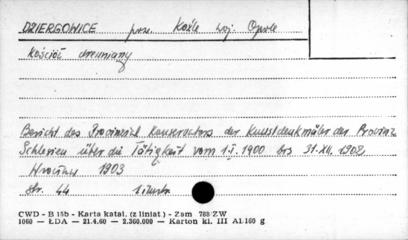 DZIERGOWICE pow. Koźle woj. Opole
Kościół drewniany
Bericht des Provinzial Konservators der Kunstdenkmäler der Provinz
Schlesien über die Tätigkeit vom 1.I.1900 bis 31.XII.1902
Wrocław 1903
Str. 44
CWD - B 15b - Karta katal. (z liniat.) - Zam 788 ZW
1060 — ŁDA — 21.4.60 — 2.360.000 — Karton kl. III A1.160 g